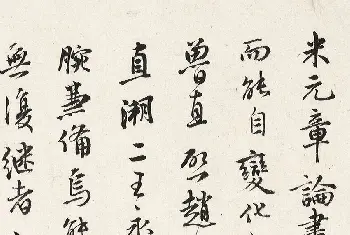 米元章論書
而能自變化
魯直歷趙
直溯二王之
腕兼備烏能
無復繼者